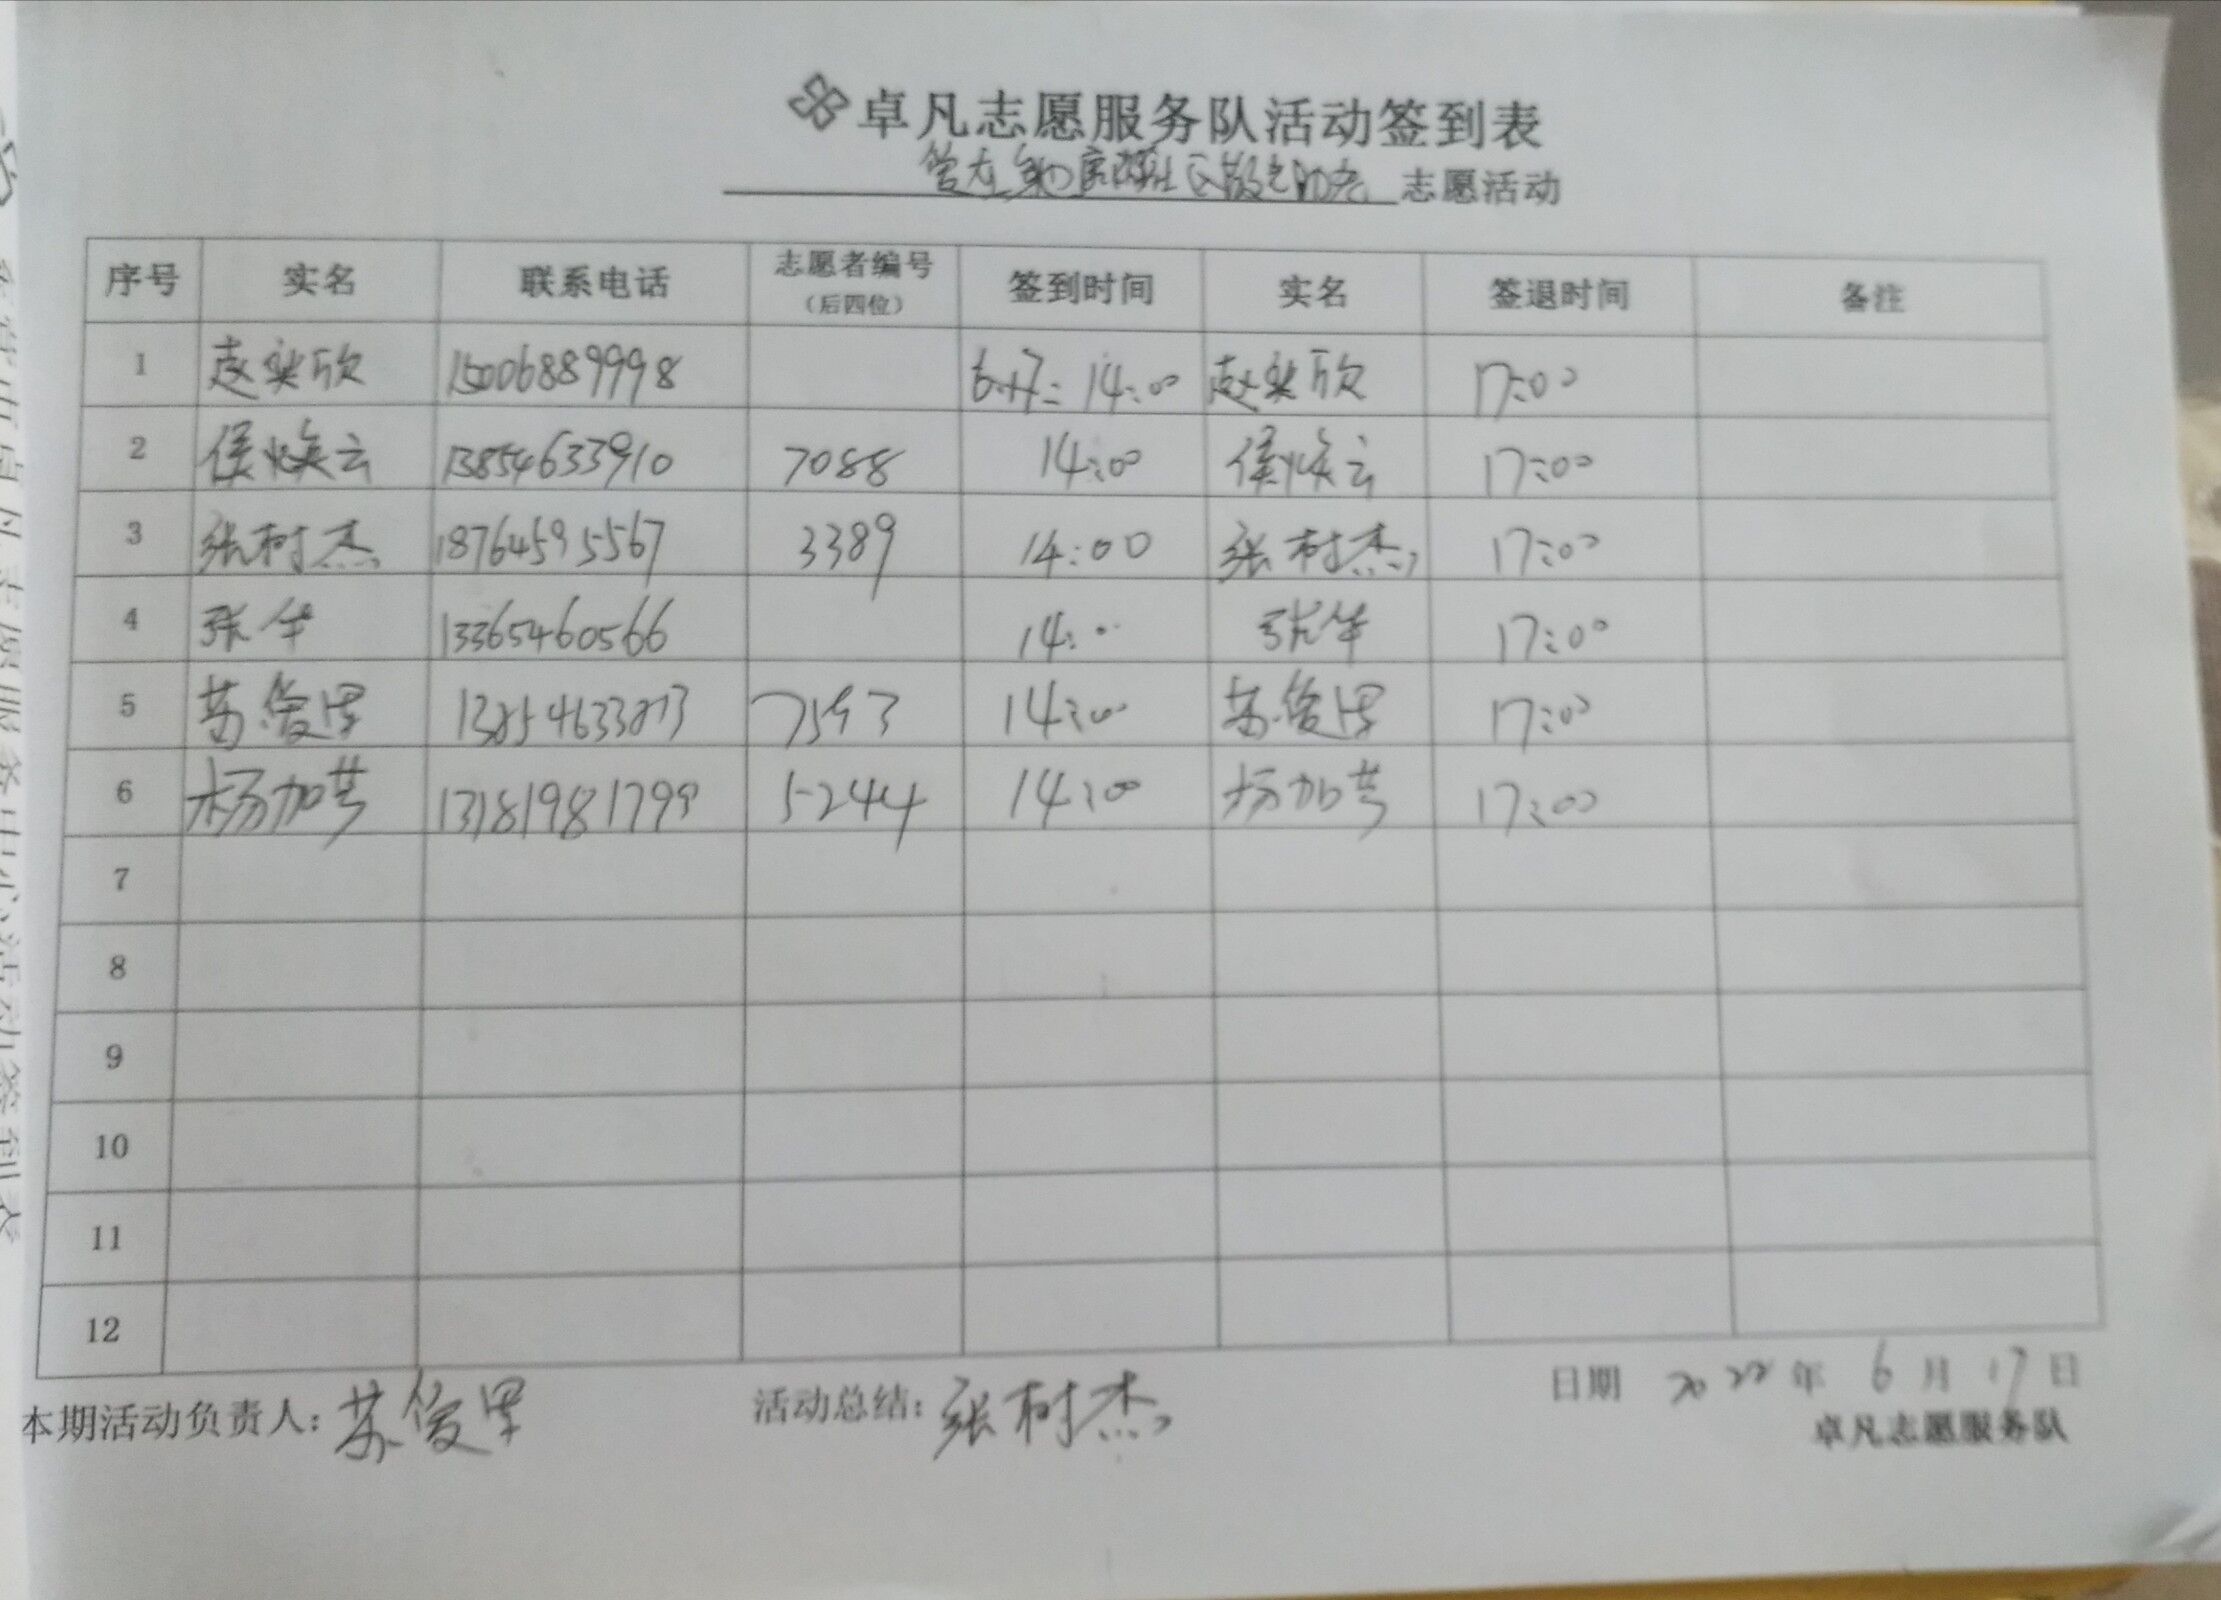 卓凡志愿服务队活动签到表
志愿活动
序号 实名 联系电话 志愿者编号（后四位） 签到时间 实名 签退时间 备注
1 赵奕欣 15006889998 14:00 赵奕欣 17:00
2 侯焕云 13854633910 7088 14:00 侯焕云 17:00
3 张树杰 18764595567 3389 14:00 张树杰 17:00
4 张华 13365460566 14:00 张华 17:00
5 苏俊里 13854633813 7593 14:00 苏俊里 17:00
6 杨加芳 13181981799 5244 14:00 杨加芳 17:00
7
8
9
10
11
12
本期活动负责人: 苏俊里 活动总结: 张树杰 日期 2022年6月17日
卓凡志愿服务队